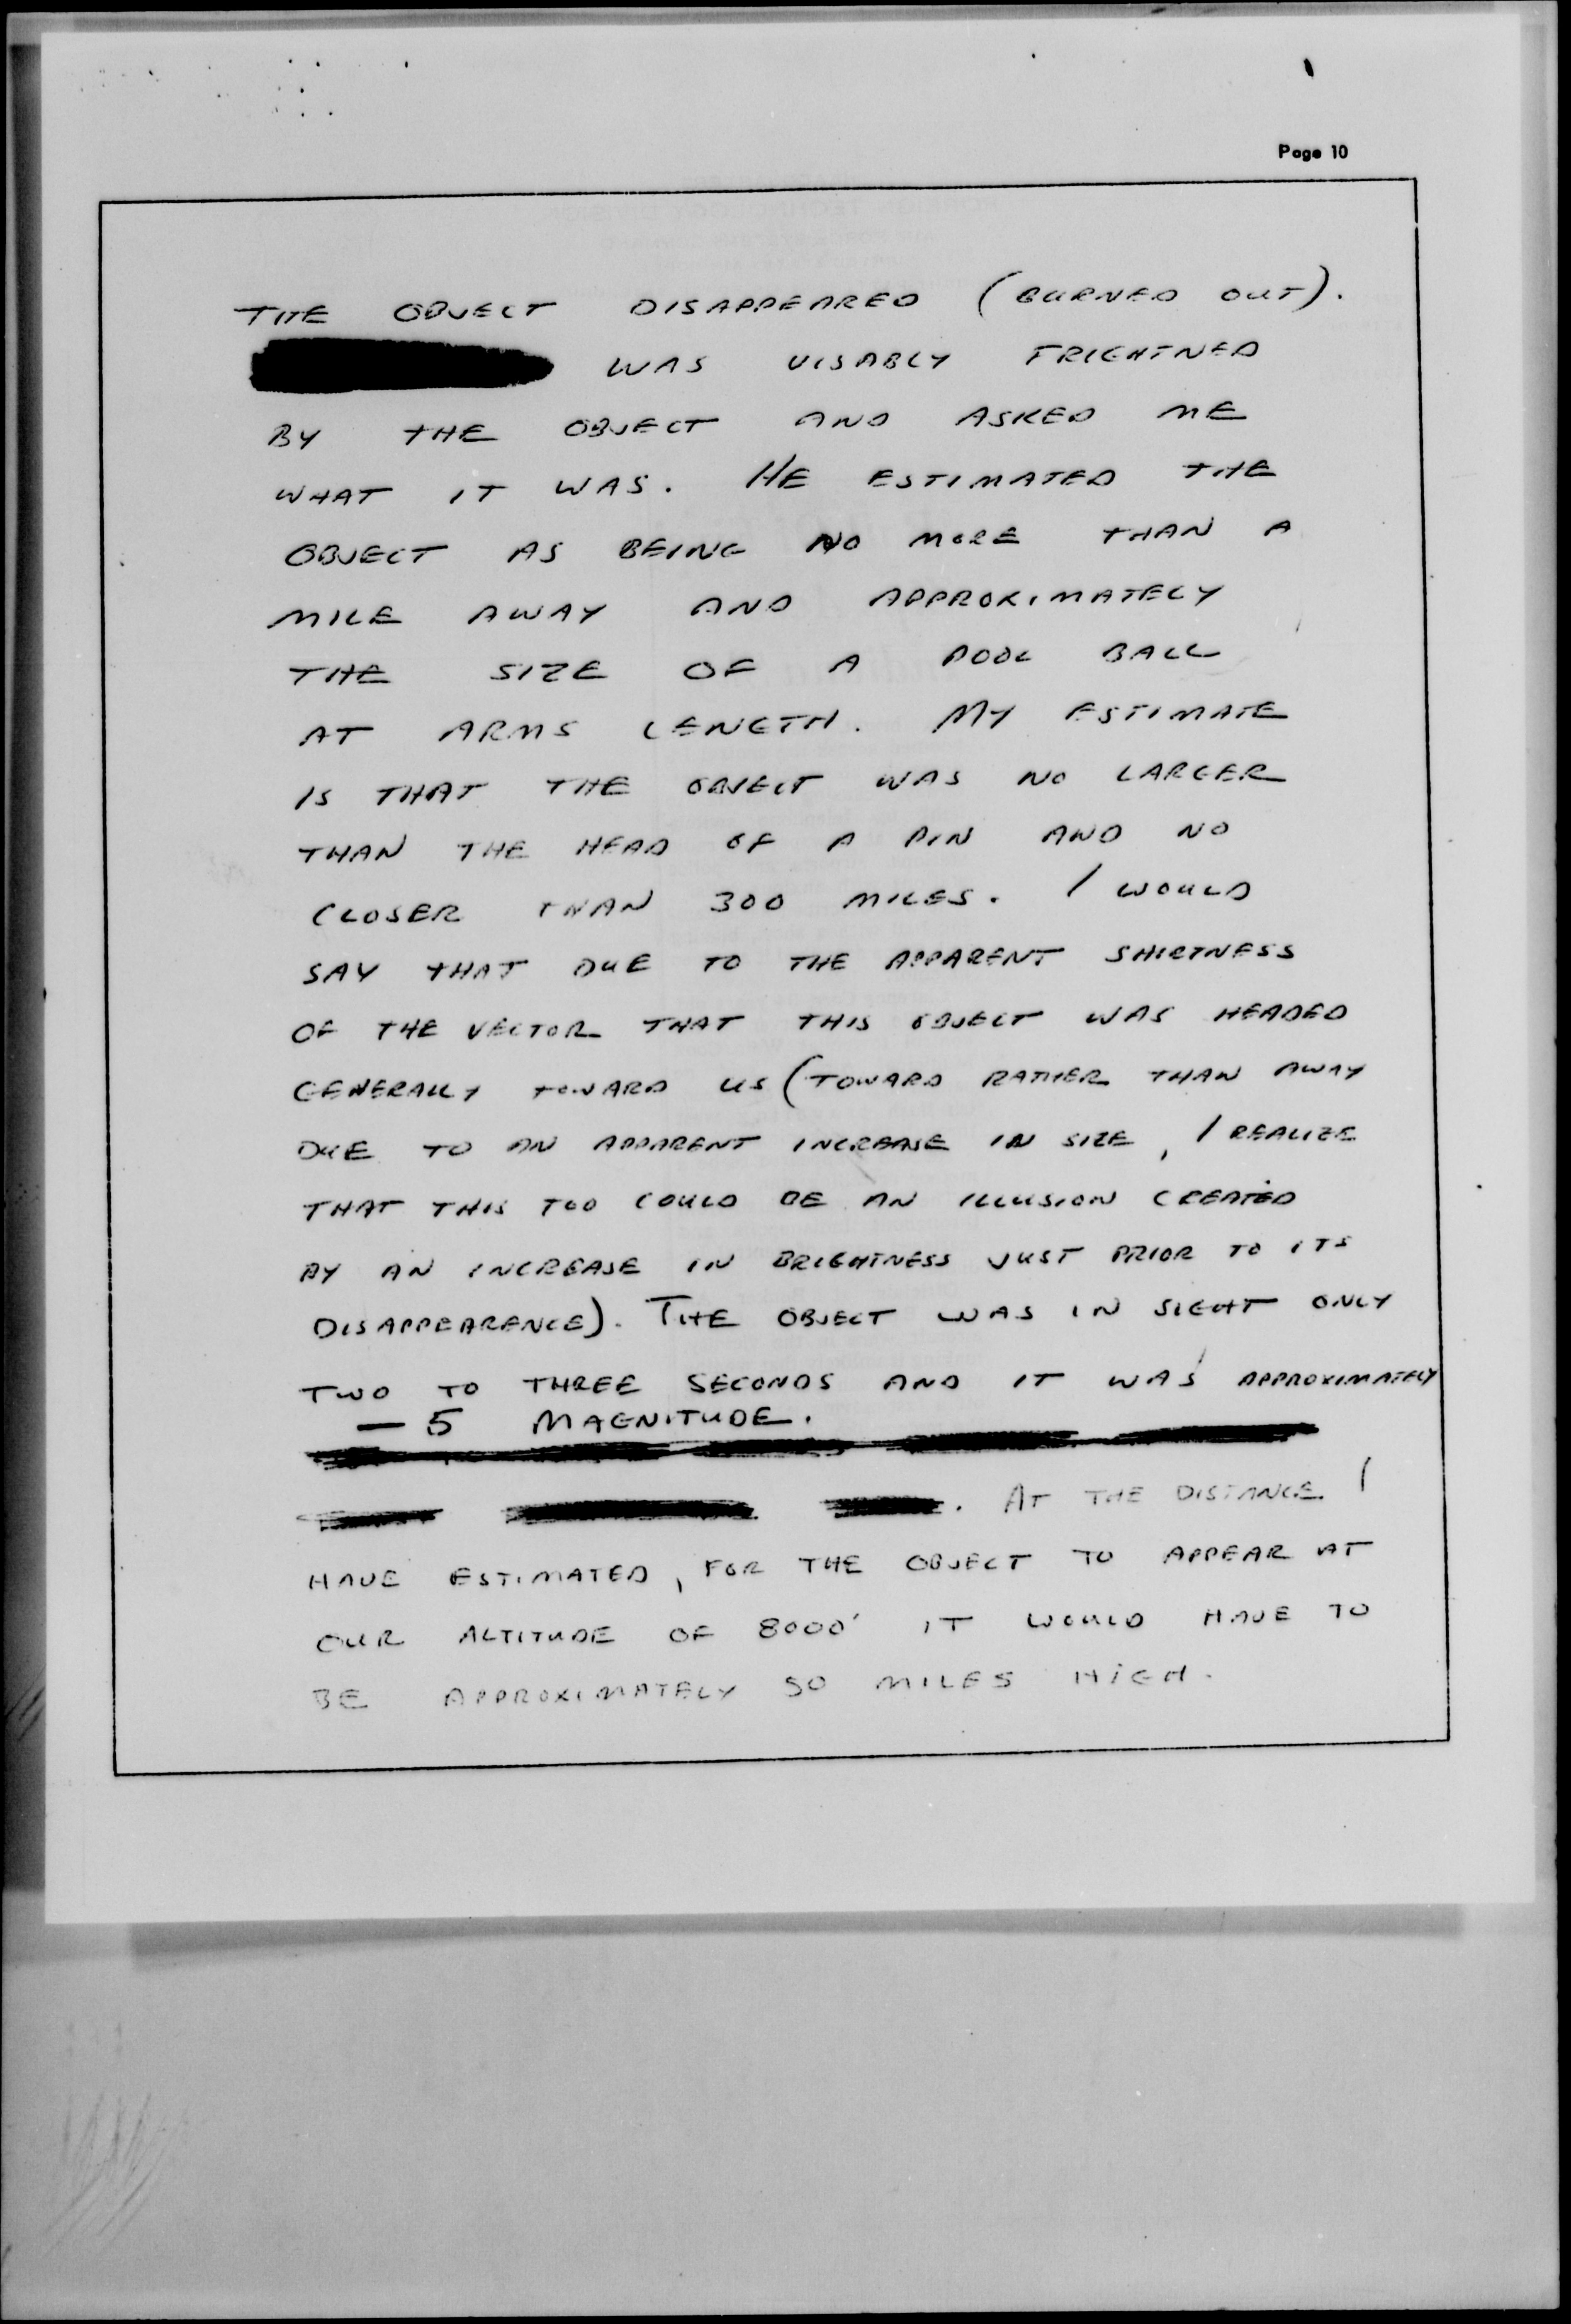 Page 10
THE OBJECT DISAPPEARED (BURNED OUT).
WAS VISABLY FRIGHTNED
BY THE OBJECT AND ASKED ME
WHAT IT WAS. HE ESTIMATED THE
OBJECT AS BEING NO MORE THAN A
MILE AWAY AND APPROXIMATELY
THE SIZE OF A POOL BALL
AT ARMS LENGTH. MY ESTIMATE
IS THAT THE OBJECT WAS NO LARGER
THAN THE HEAD OF A PIN AND NO
CLOSER THAN 300 MILES. I WOULD
SAY THAT DUE TO THE APPARENT SHORTNESS
OF THE VECTOR THAT THIS OBJECT WAS HEADED
GENERALLY TOWARD US (TOWARD RATHER THAN AWAY
DUE TO AN APPARENT INCREASE IN SIZE, I REALIZE
THAT THIS TOO COULD BE AN ILLUSION CREATED
BY AN INCREASE IN BRIGHTNESS JUST PRIOR TO ITS
DISAPPEARENCE). THE OBJECT WAS IN SIGHT ONLY
TWO TO THREE SECONDS AND IT WAS APPROXIMATELY
— 5 MAGNITUDE.
. AT THE DISTANCE I
HAVE ESTIMATED, FOR THE OBJECT TO APPEAR AT
OUR ALTITUDE OF 8000' IT WOULD HAVE TO
BE APPROXIMATELY 50 MILES HIGH.